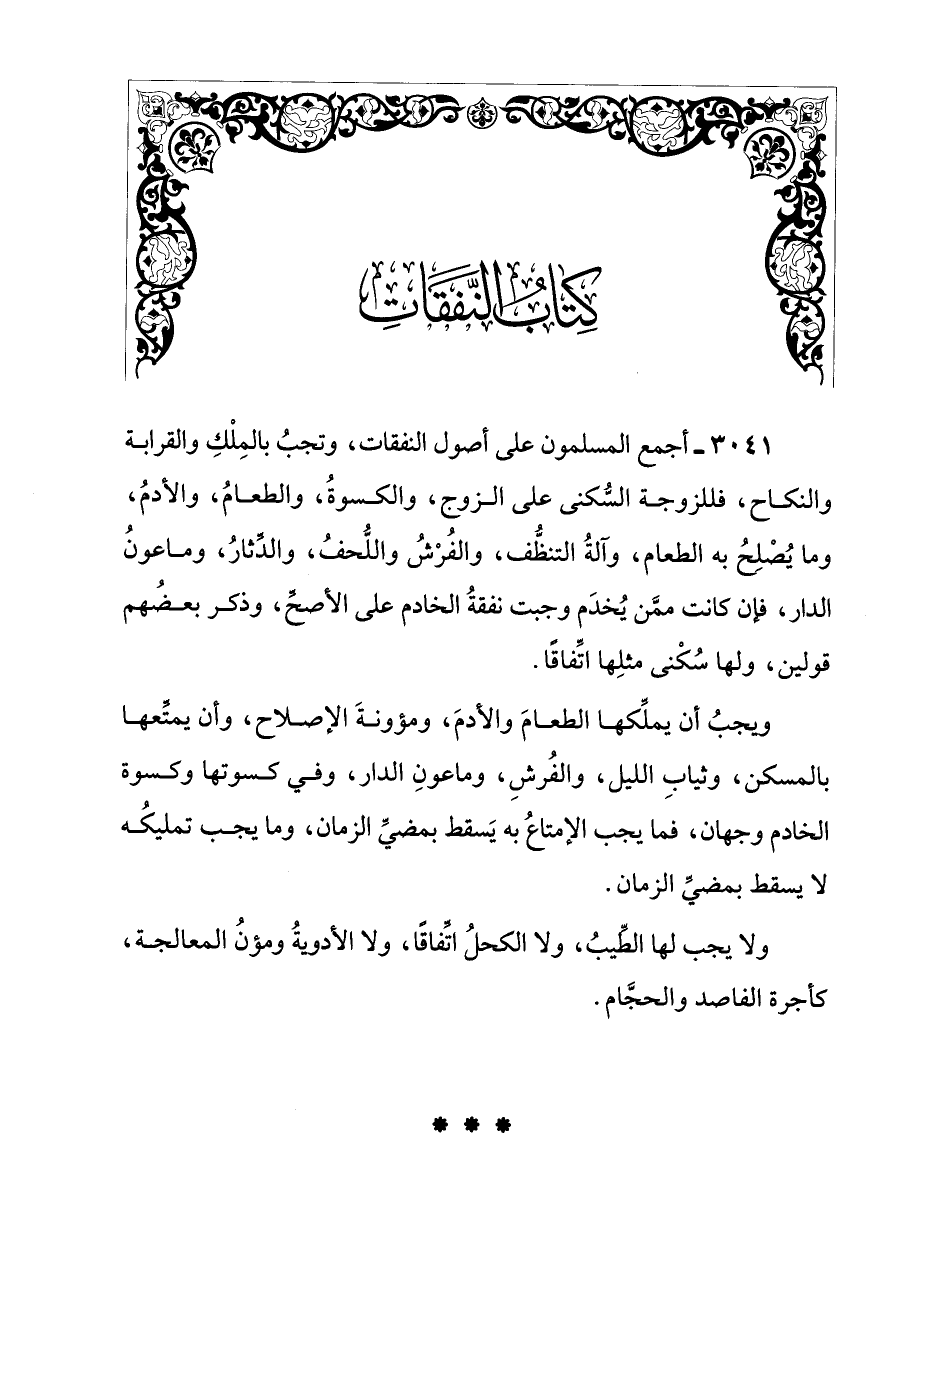 كِتَابُ النَّفَقَاتِ
٣٠٤١ ـ أجمع المسلمون على أصول النفقات، وتجبُ بالمِلْكِ والقرابة
والنكاح، فللزوجة السُّكنى على الزوج، والكسوةُ، والطعامُ، والأدمُ،
وما يُصْلِحُ به الطعام، وآلةُ التنظُّف، والفُرْشُ واللُّحفُ، والدِّثارُ، وماعونُ
الدار، فإن كانت ممَّن يُخدَم وجبت نفقةُ الخادم على الأصحِّ، وذكر بعضُهم
قولين، ولها سُكْنى مثلِها اتِّفاقًا.
ويجبُ أن يملِّكها الطعامَ والأدمَ، ومؤونةَ الإصلاح، وأن يمتِّعها
بالمسكن، وثيابِ الليل، والفُرشِ، وماعونِ الدار، وفي كسوتها وكسوة
الخادم وجهان، فما يجب الإمتاعُ به يَسقط بمضيِّ الزمان، وما يجب تمليكُه
لا يسقط بمضيِّ الزمان.
ولا يجب لها الطِّيبُ، ولا الكحلُ اتِّفاقًا، ولا الأدويةُ ومؤنُ المعالجة،
كأجرة الفاصد والحجَّام.
* * *